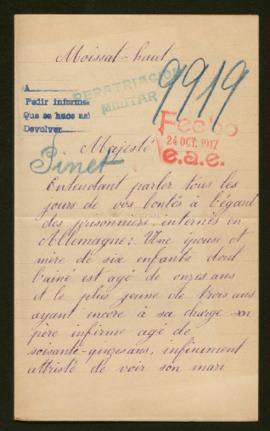 Moissat-haut
REPATRIACION
MILITAR
9919
A
Pedir informe
Que se hace así
Devolver
Fecho
24 OCT. 1917
e.a.e.
Pinet
Majesté
Entendant parler tous les
jours de vos bontés à l'égard
des prisonniers internés en
Allemagne: Une épouse et
mère de six enfants dont
l'ainé est agé de onze ans
et le plus jeune de trois ans
ayant encore à sa charge son
père infirme agé de
soixante-quinze ans, infiniment
attristé de voir son mari